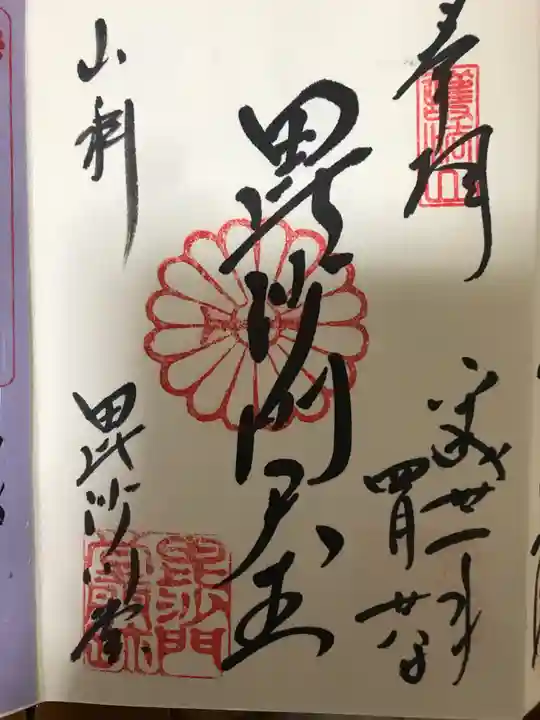 奉拝
平成卅一年
四月廿八日
毘沙門天王
山科
毘沙門堂
護法山
毘沙門